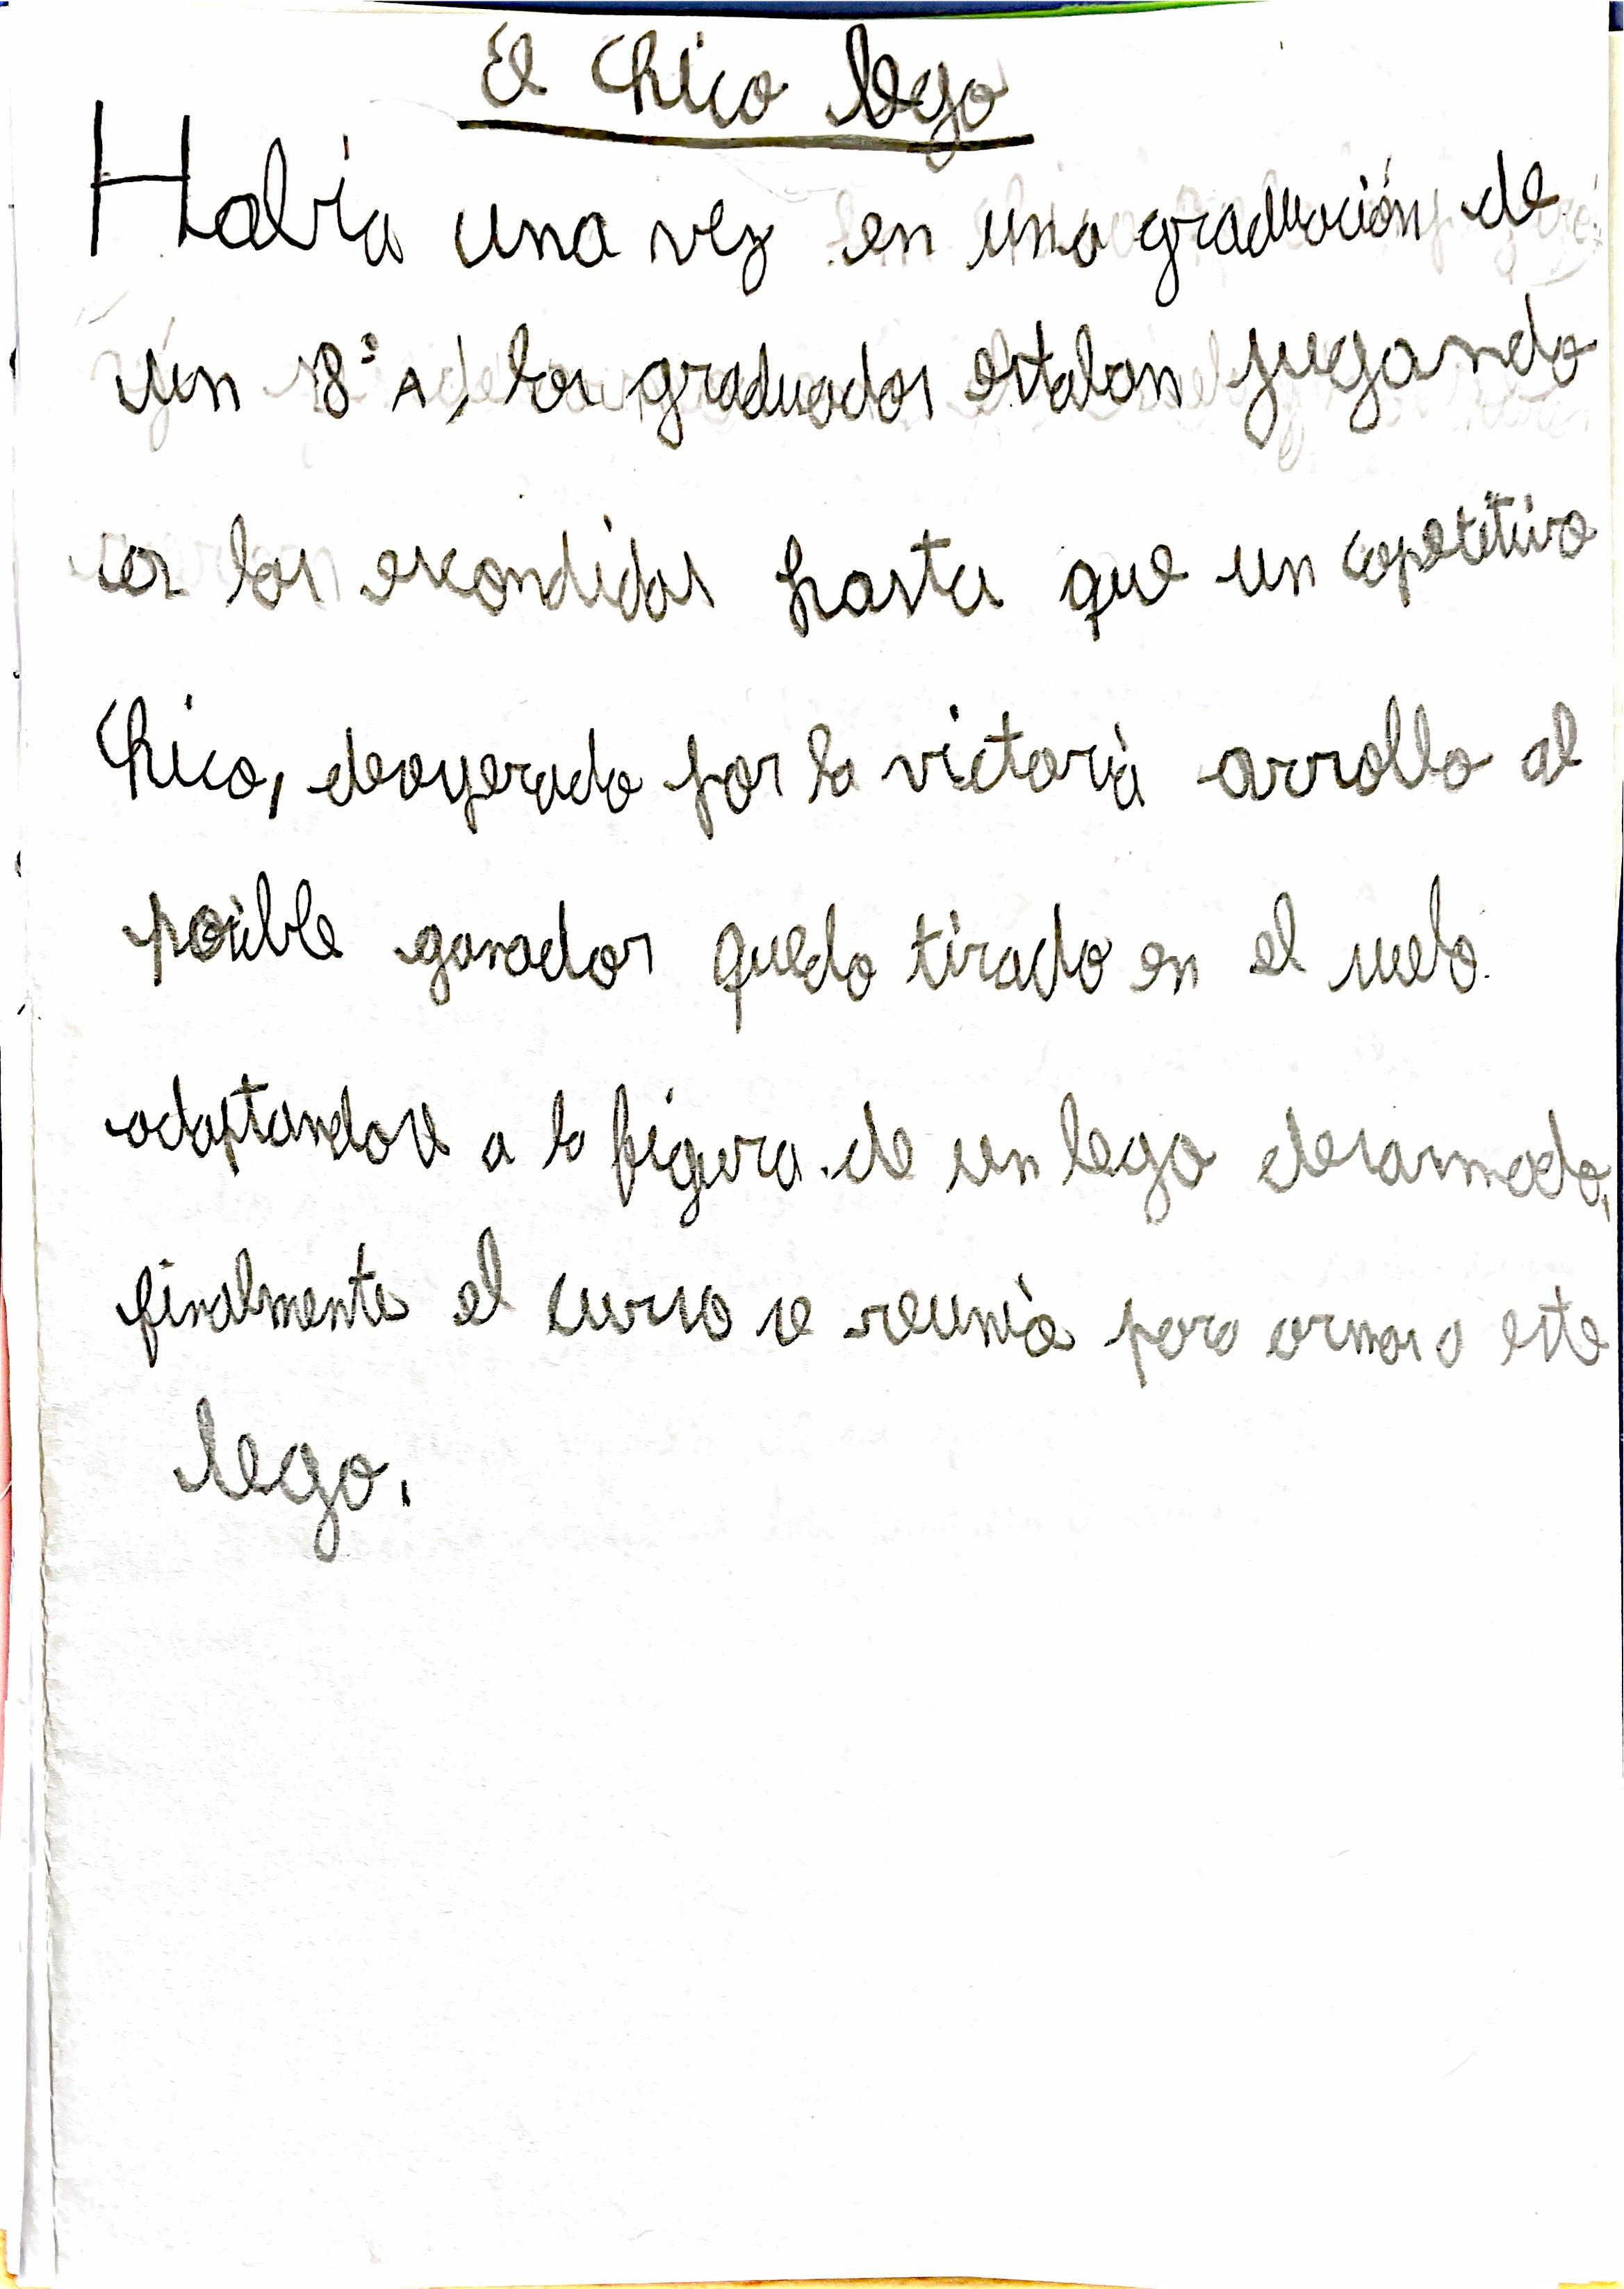 El Chico lego
Había una vez en una graduación de
un 8° A, los graduados estaban jugando
a las escondidas hasta que un copetitivo
Chico, desesperado por la victoria arrollo al
posible ganador quedo tirado en el suelo.
adaptandose a la figura de un lego desarmado,
finalmente el curso se reunió para armar a este
lego.